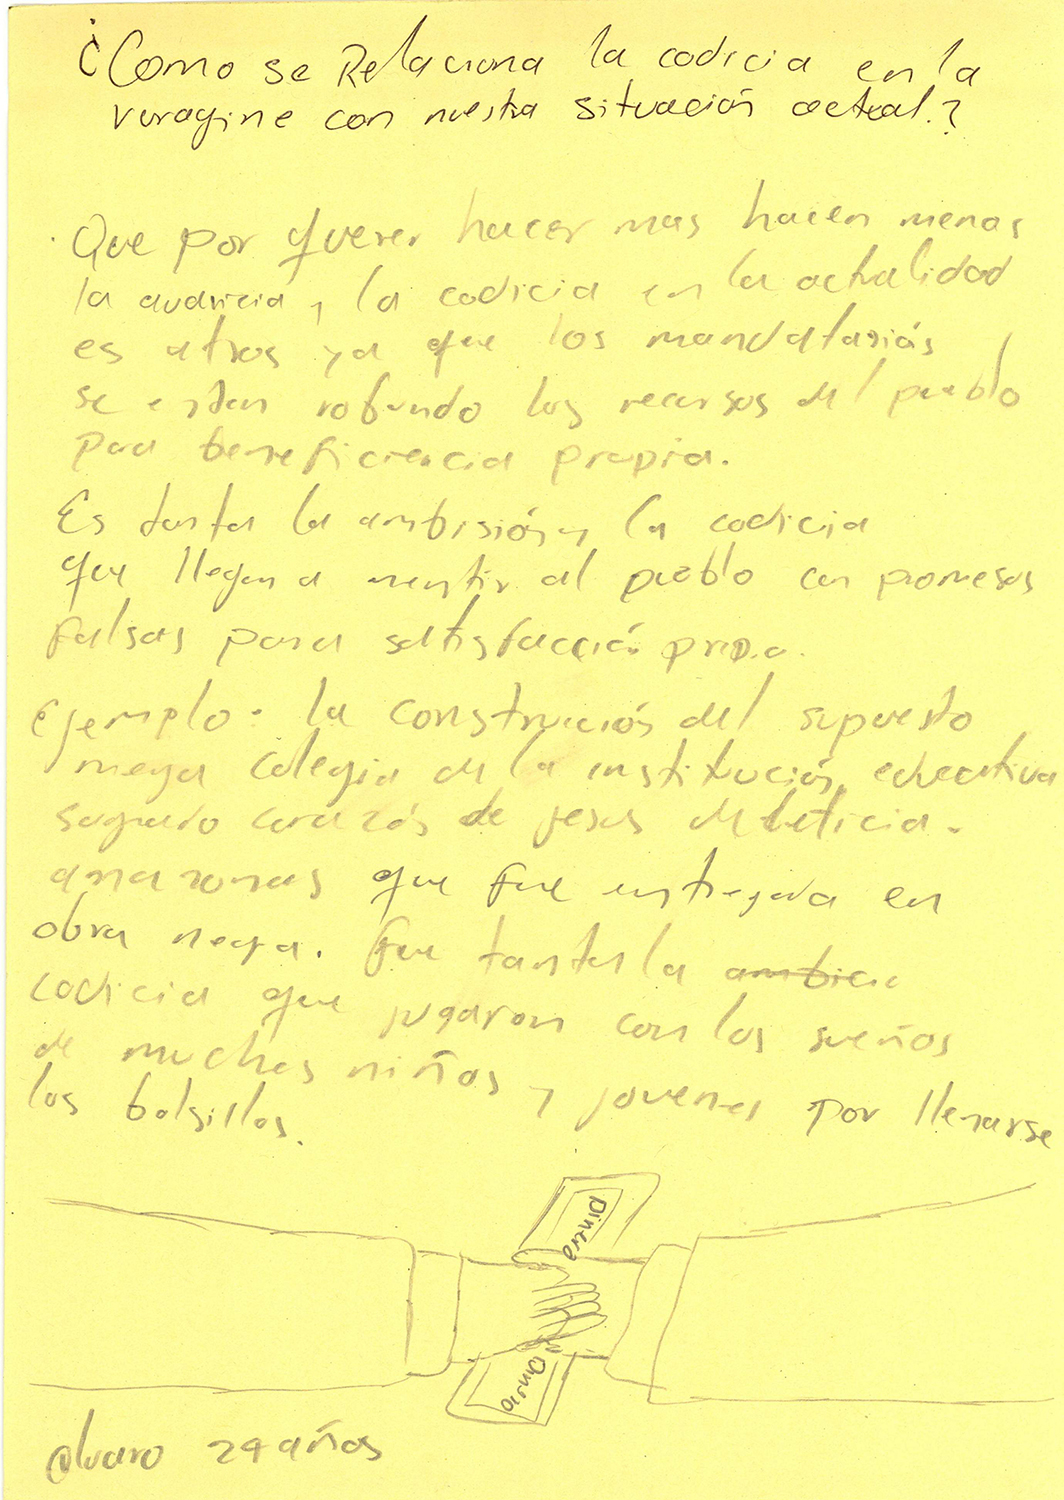 ¿Como se Relaciona la codicia en la
voragine con nuestra situación actual.?
Que por querer hacer mas hacen menos
la avaricia y la codicia en la actualidad
es atros ya que los mandatarios
se estan robando los recursos del pueblo
para beneficiencia propia.
Es tanta la ambisión y la codicia
que llegan a mentir al pueblo con promesas
falsas para satisfacción propia.
Ejemplo: la construcción del supuesto
mega colegio de la institución educativa
sagrado corazón de jesus de leticia.
amazonas que fue entregada en
obra negra. fue tanta la ambicio
codicia que jugaron con los sueños
de muchos niños y jovenes por llenarse
los bolsillos.
Dinero
Dinero
@lvaro 24 años